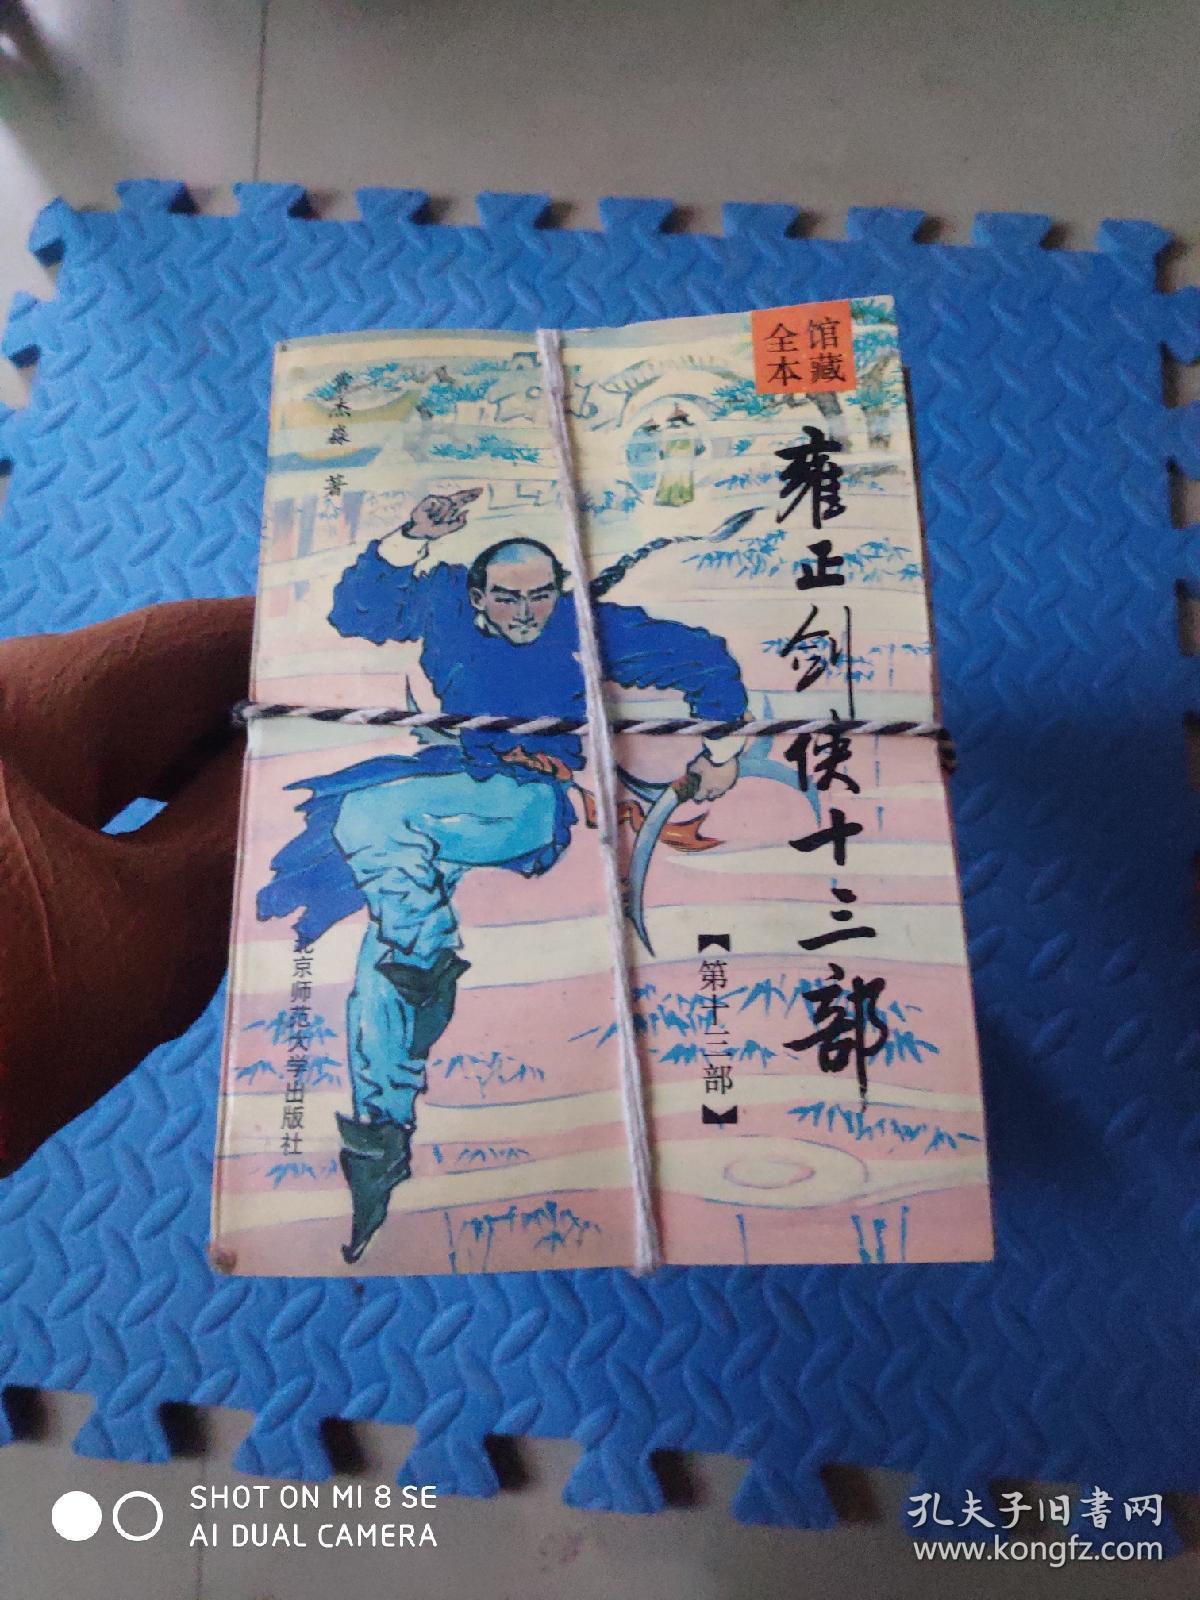 馆藏
全本
雍正剑侠十三部
【第十三部】
杰森 著
北京师范大学出版社
SHOT ON MI 8 SE
AI DUAL CAMERA
孔夫子旧书网
www.kongfz.com